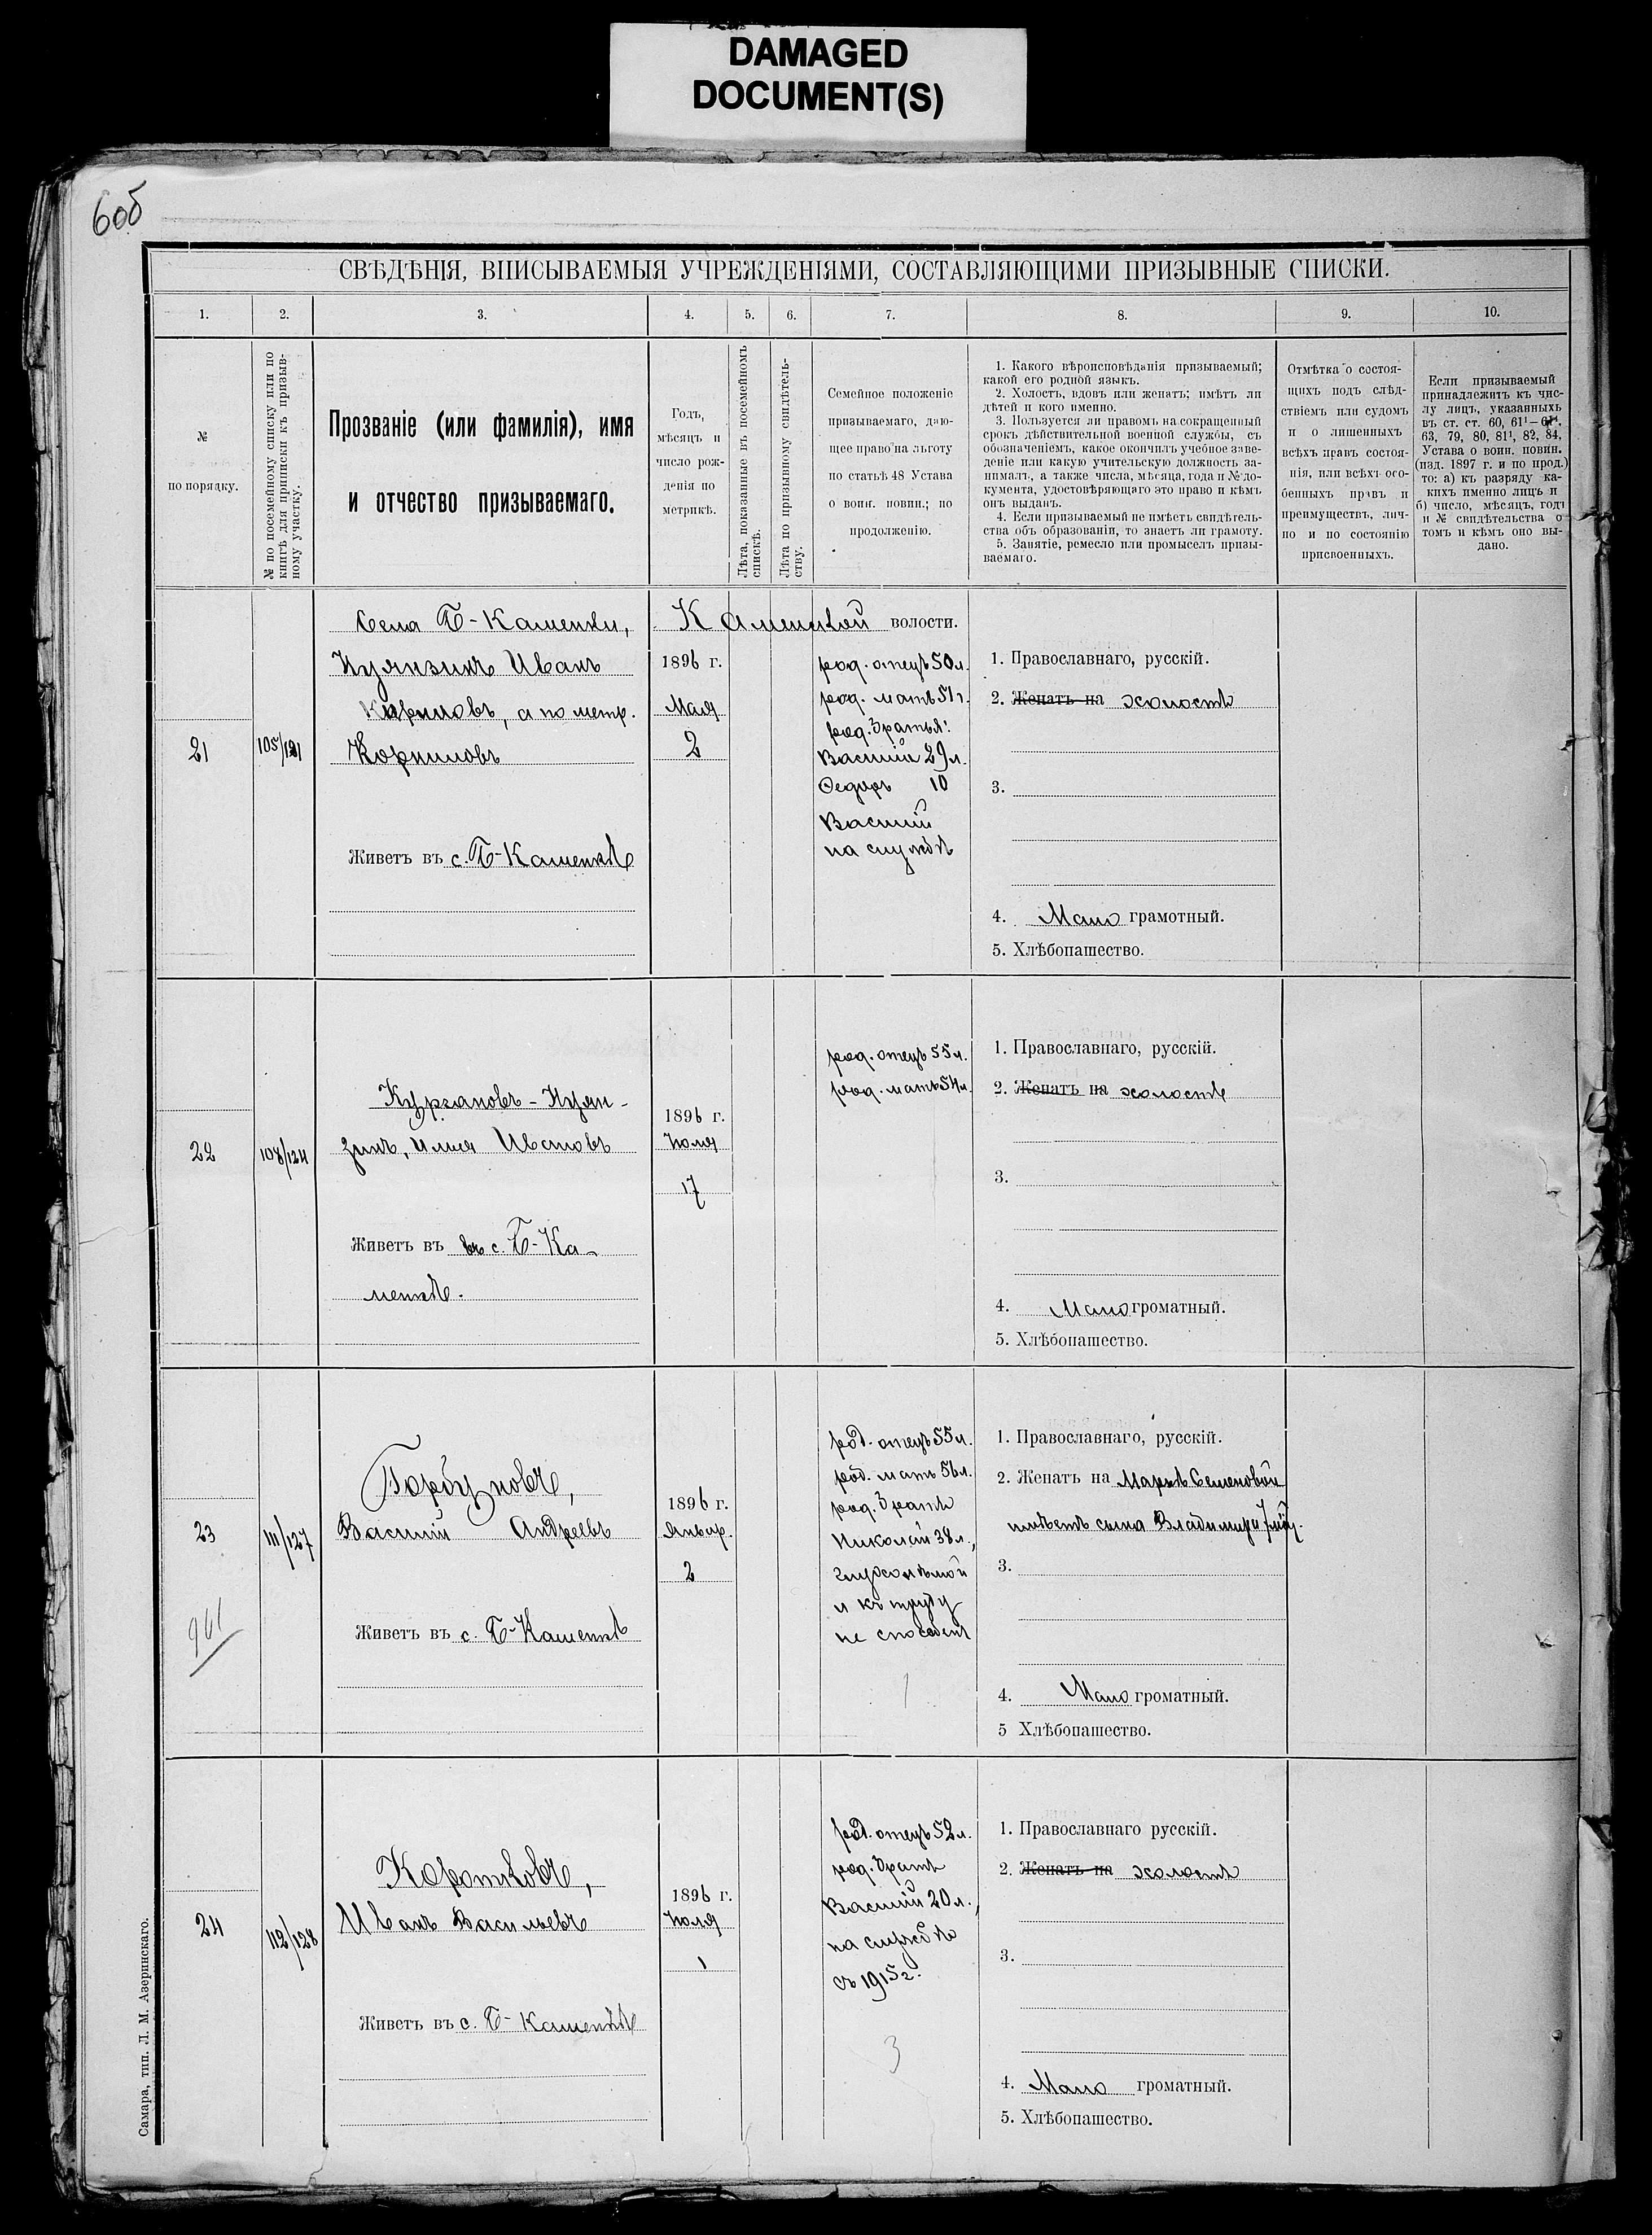 DAMAGED
DOCUMENT(S)
60б
СВѢДѢНІЯ, ВПИСЫВАЕМЫЯ УЧРЕЖДЕНІЯМИ, СОСТАВЛЯЮЩИМИ ПРИЗЫВНЫЕ СПИСКИ.
1. 2. 3. 4. 5. 6. 7. 8. 9. 10.
№
по порядку.
№ по посемейному списку или по
книгѣ для приписки къ призыв-
ному участку.
Прозваніе (или фамилія), имя
и отчество призываемаго.
Годъ,
мѣсяцъ и
число рож-
денія по
метрикѣ.
Лѣта, показанные въ посемейномъ
спискѣ.
Лѣта по призывному свидѣтель-
ству.
Семейное положеніе
призываемаго, даю-
щее право на льготу
по статьѣ 48 Устава
о воин. повин.; по
продолженію.
1. Какого вѣроисповѣданія призываемый;
какой его родной языкъ.
2. Холостъ, вдовъ или женатъ; имѣтъ ли
дѣтей и кого именно.
3. Пользуется ли правомъ на сокращенный
срокъ дѣйствительной военной службы, съ
обозначеніемъ, какое окончилъ учебное заве-
деніе или какую учительскую должность за-
нималъ, а также числа, мѣсяца, года и № до-
кумента, удостовѣряющаго это право и кѣмъ
онъ выданъ.
4. Если призываемый не имѣетъ свидѣтель-
ства объ образованіи, то знаетъ ли грамоту.
5. Занятіе, ремесло или промыселъ призы-
ваемаго.
Отмѣтка о состоя-
щихъ подъ слѣд-
ствіемъ или судомъ
и о лишенныхъ
всѣхъ правъ состоя-
нія, или всѣхъ осо-
бенныхъ правъ и
преимуществъ, лич-
но и по состоянію
присвоенныхъ.
Если призываемый
принадлежитъ къ чис-
лу лицъ, указанныхъ
въ ст. ст. 60, 61¹—61⁴,
63, 79, 80, 81¹, 82, 84,
Устава о воин. повин.
(изд. 1897 г. и по прод.)
то: а) къ разряду ка-
кихъ именно лицъ и
б) число, мѣсяцъ, годъ
и № свидѣтельства о
томъ и кѣмъ оно вы-
дано.
Села Б-Каменки, Каменской волости.
21
105/121
Кулязинъ Иванъ
Карповъ, а по метр.
Корниловъ
Живетъ въ с. Б-Каменкѣ
1896 г.
Мая
2
род. отецъ 50 л.
род. мать 51 г.
род. братья:
Василій 29 л.
Федоръ 10
Василій
на службѣ
1. Православнаго, русскій.
2. Женатъ на холостъ
3.
4. Мало грамотный.
5. Хлѣбопашество.
22
108/124
Кургановъ-Куля-
зинъ, Илья Ивановъ
Живетъ въ въ с. Б-Ка-
менкѣ.
1896 г.
Іюля
17
род. отецъ 55 л.
род. мать 54 л.
1. Православнаго, русскій.
2. Женатъ на холостъ
3.
4. Мало громатный.
5. Хлѣбопашество.
23
111/127
Горбуновъ,
Василій Андреевъ
Живетъ въ с. Б-Каменкѣ
1896 г.
Январ.
2
род. отецъ 55 л.
род. мать 56 л.
род. братъ
Николай 38 л.,
глухонѣмой
и къ труду
не способенъ
1
1. Православнаго, русскій.
2. Женатъ на Марьѣ Семеновой
имѣетъ сына Владимира
3.
4. Мало громатный.
5 Хлѣбопашество.
24
112/128
Коротковъ,
Иванъ Васильевъ
Живетъ въ с. Б-Каменкѣ
1896 г.
Іюля
1
род. отецъ 52 л.
род. братъ
Василій 20 л.,
на службѣ
съ 1915 г.
3
1. Православнаго русскій.
2. Женатъ на холостъ
3.
4. Мало громатный.
5. Хлѣбопашество.
Самара, тип. Л. М. Азеринскаго.